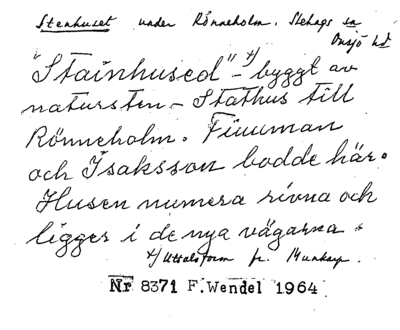 Stenhuset under Rönneholm. Stehags sn
Onsjö hd
"Stainhused" x) – byggt av
natursten – Stathus till
Rönneholm. Finuman
och Isaksson bodde här.
Husen numera rivna och
ligger i de nya vägarna.
x/ Uttalsform fr. Munkarp.
Nr 8371 F.Wendel 1964